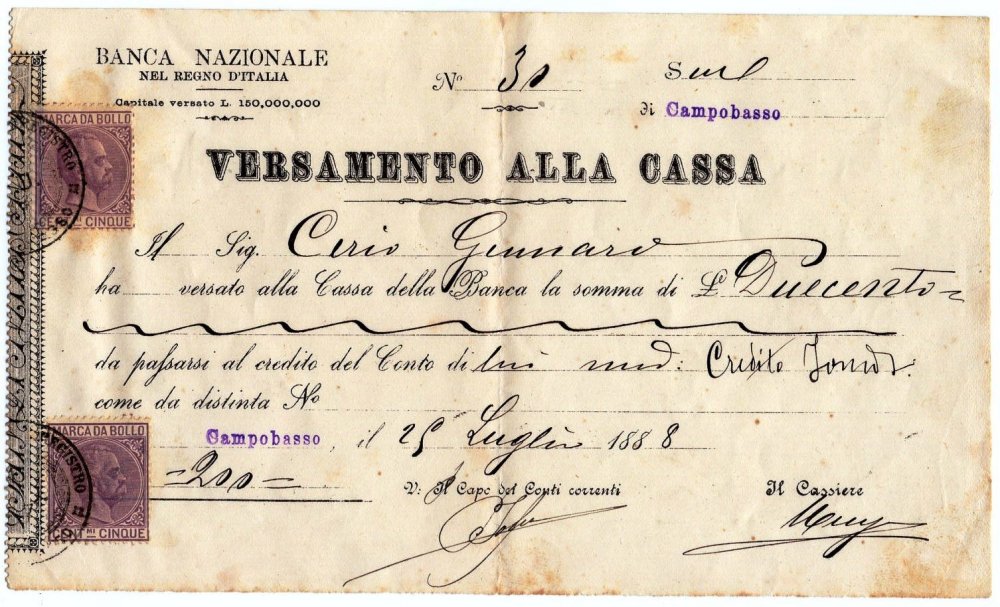 BANCA NAZIONALE
NEL REGNO D'ITALIA
Capitale versato L. 150,000,000
No 30
di Campobasso
MARCA DA BOLLO
CENT.MI CINQUE
VERSAMENTO ALLA CASSA
Il Sig. Cerio Gennaro
ha versato alla Cassa della Banca la somma di Le Duecento=
da passarsi al credito del Conto di lui med: Credito Fond:
come da distinta No
Campobasso, il 25 Luglio 1888
MARCA DA BOLLO
CENT.MI CINQUE
=200=
V: Il Capo dei Conti correnti
Il Cassiere